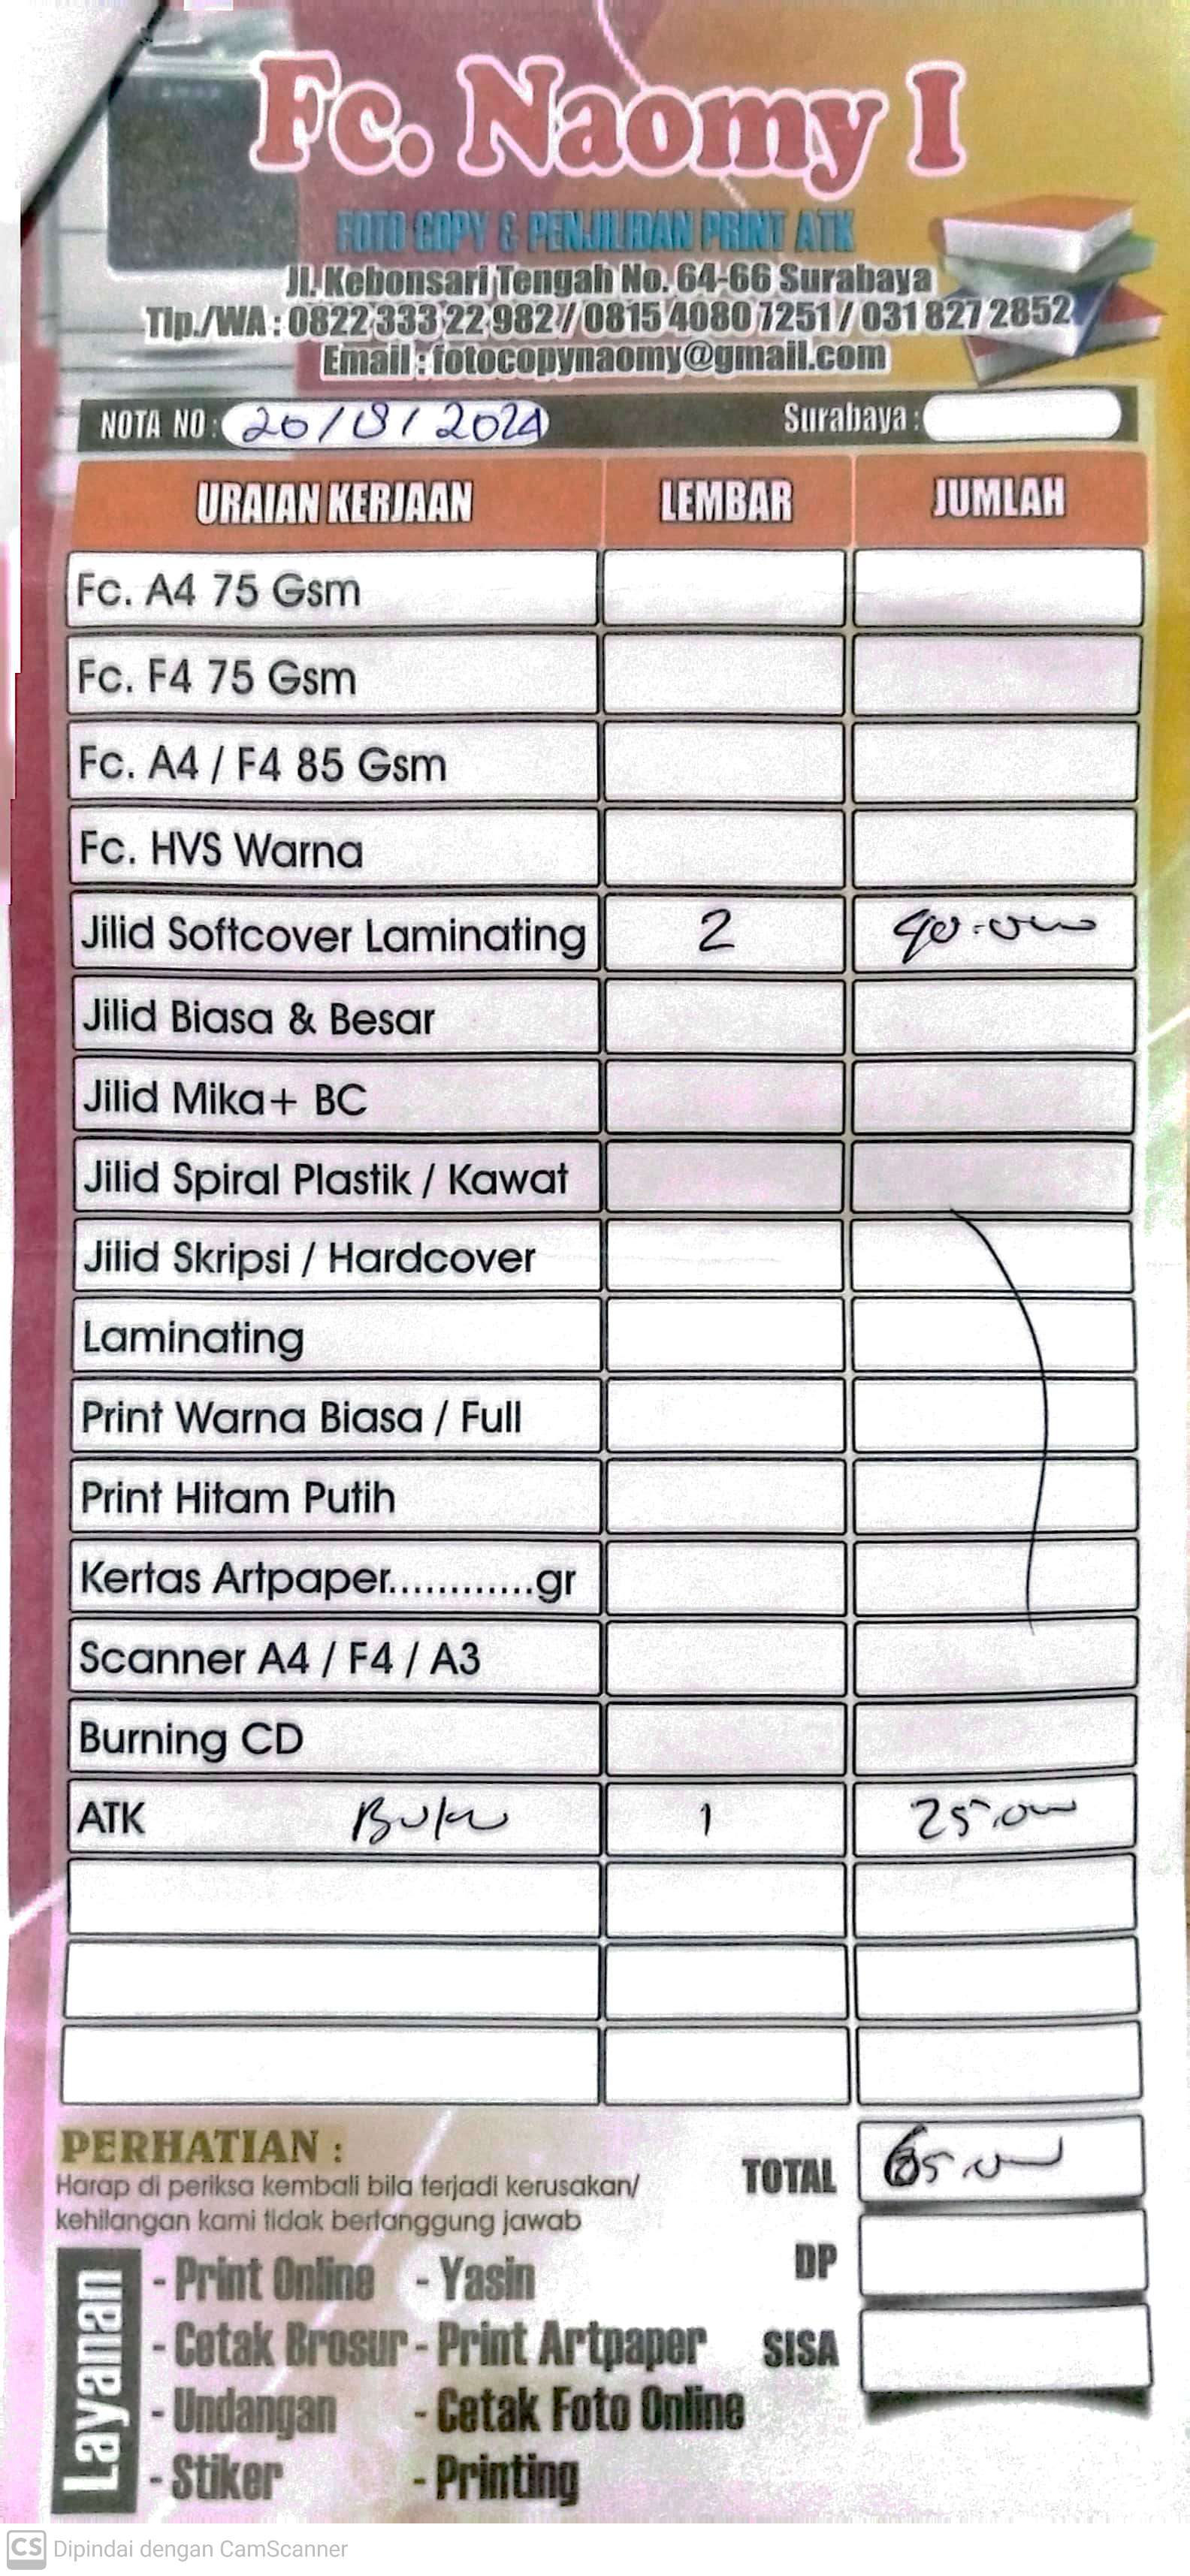 Fc. Naomy I
FOTO COPY & PENJILIDAN PRINT ATK
Jl. Kebonsari Tengah No. 64-66 Surabaya
Tlp./WA : 0822 333 22 982 // 0815 4080 7251 / 031 827 2852
Email : fotocopynaomy@gmail.com
NOTA NO : 20/8/2024 Surabaya :
URAIAN KERJAAN LEMBAR JUMLAH
Fc. A4 75 Gsm
Fc. F4 75 Gsm
Fc. A4 / F4 85 Gsm
Fc. HVS Warna
Jilid Softcover Laminating 2 40.000
Jilid Biasa & Besar
Jilid Mika+ BC
Jilid Spiral Plastik / Kawat
Jilid Skripsi / Hardcover
Laminating
Print Warna Biasa / Full
Print Hitam Putih
Kertas Artpaper............gr
Scanner A4 / F4 / A3
Burning CD
ATK Buku 1 25.000
PERHATIAN :
Harap di periksa kembali bila terjadi kerusakan/
kehilangan kami tidak bertanggung jawab
TOTAL 65.000
DP
SISA
Layanan
- Print Online - Yasin
- Cetak Brosur - Print Artpaper
- Undangan - Cetak Foto Online
- Stiker - Printing
CS Dipindai dengan CamScanner